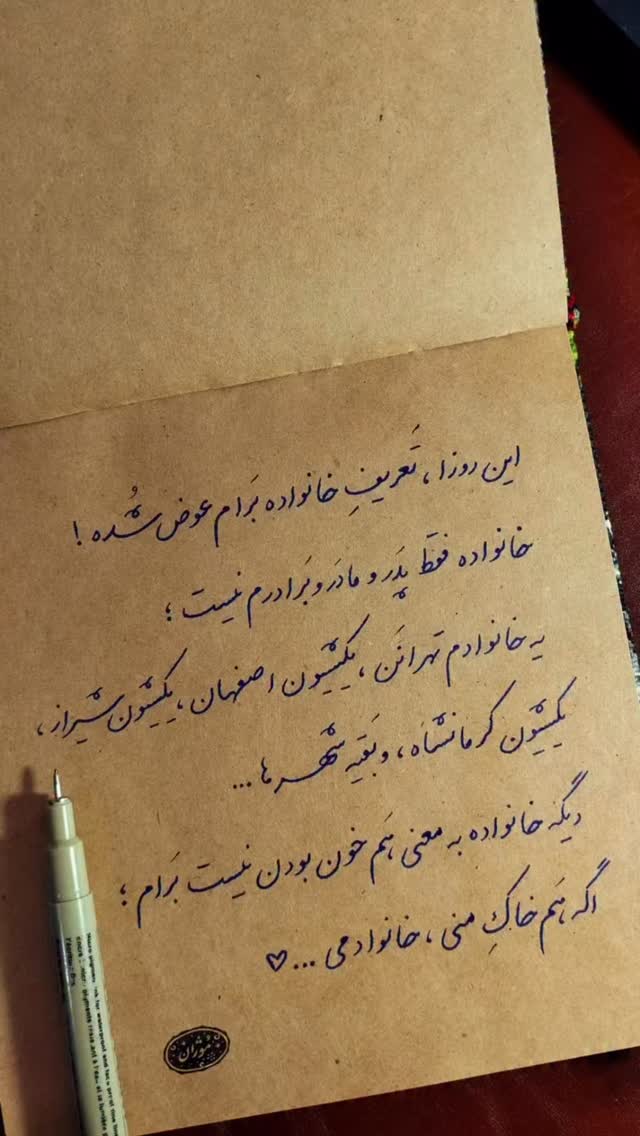 این روزا، تَعریفِ خانواده بَرام عوض شُده!
خانواده فقط پِدَر و مادَر و بَرادرم نیست؛
یه خانوادم تهرانَن، یکیشون اصفهان، یکیشون شیراز،
یکیشون کرمانشاه، و بَقیه شهرها...
دیگه خانواده به معنی هَم خون بودن نیست بَرام؛
اگه هَم خاکِ منی، خانوادمی... ♡